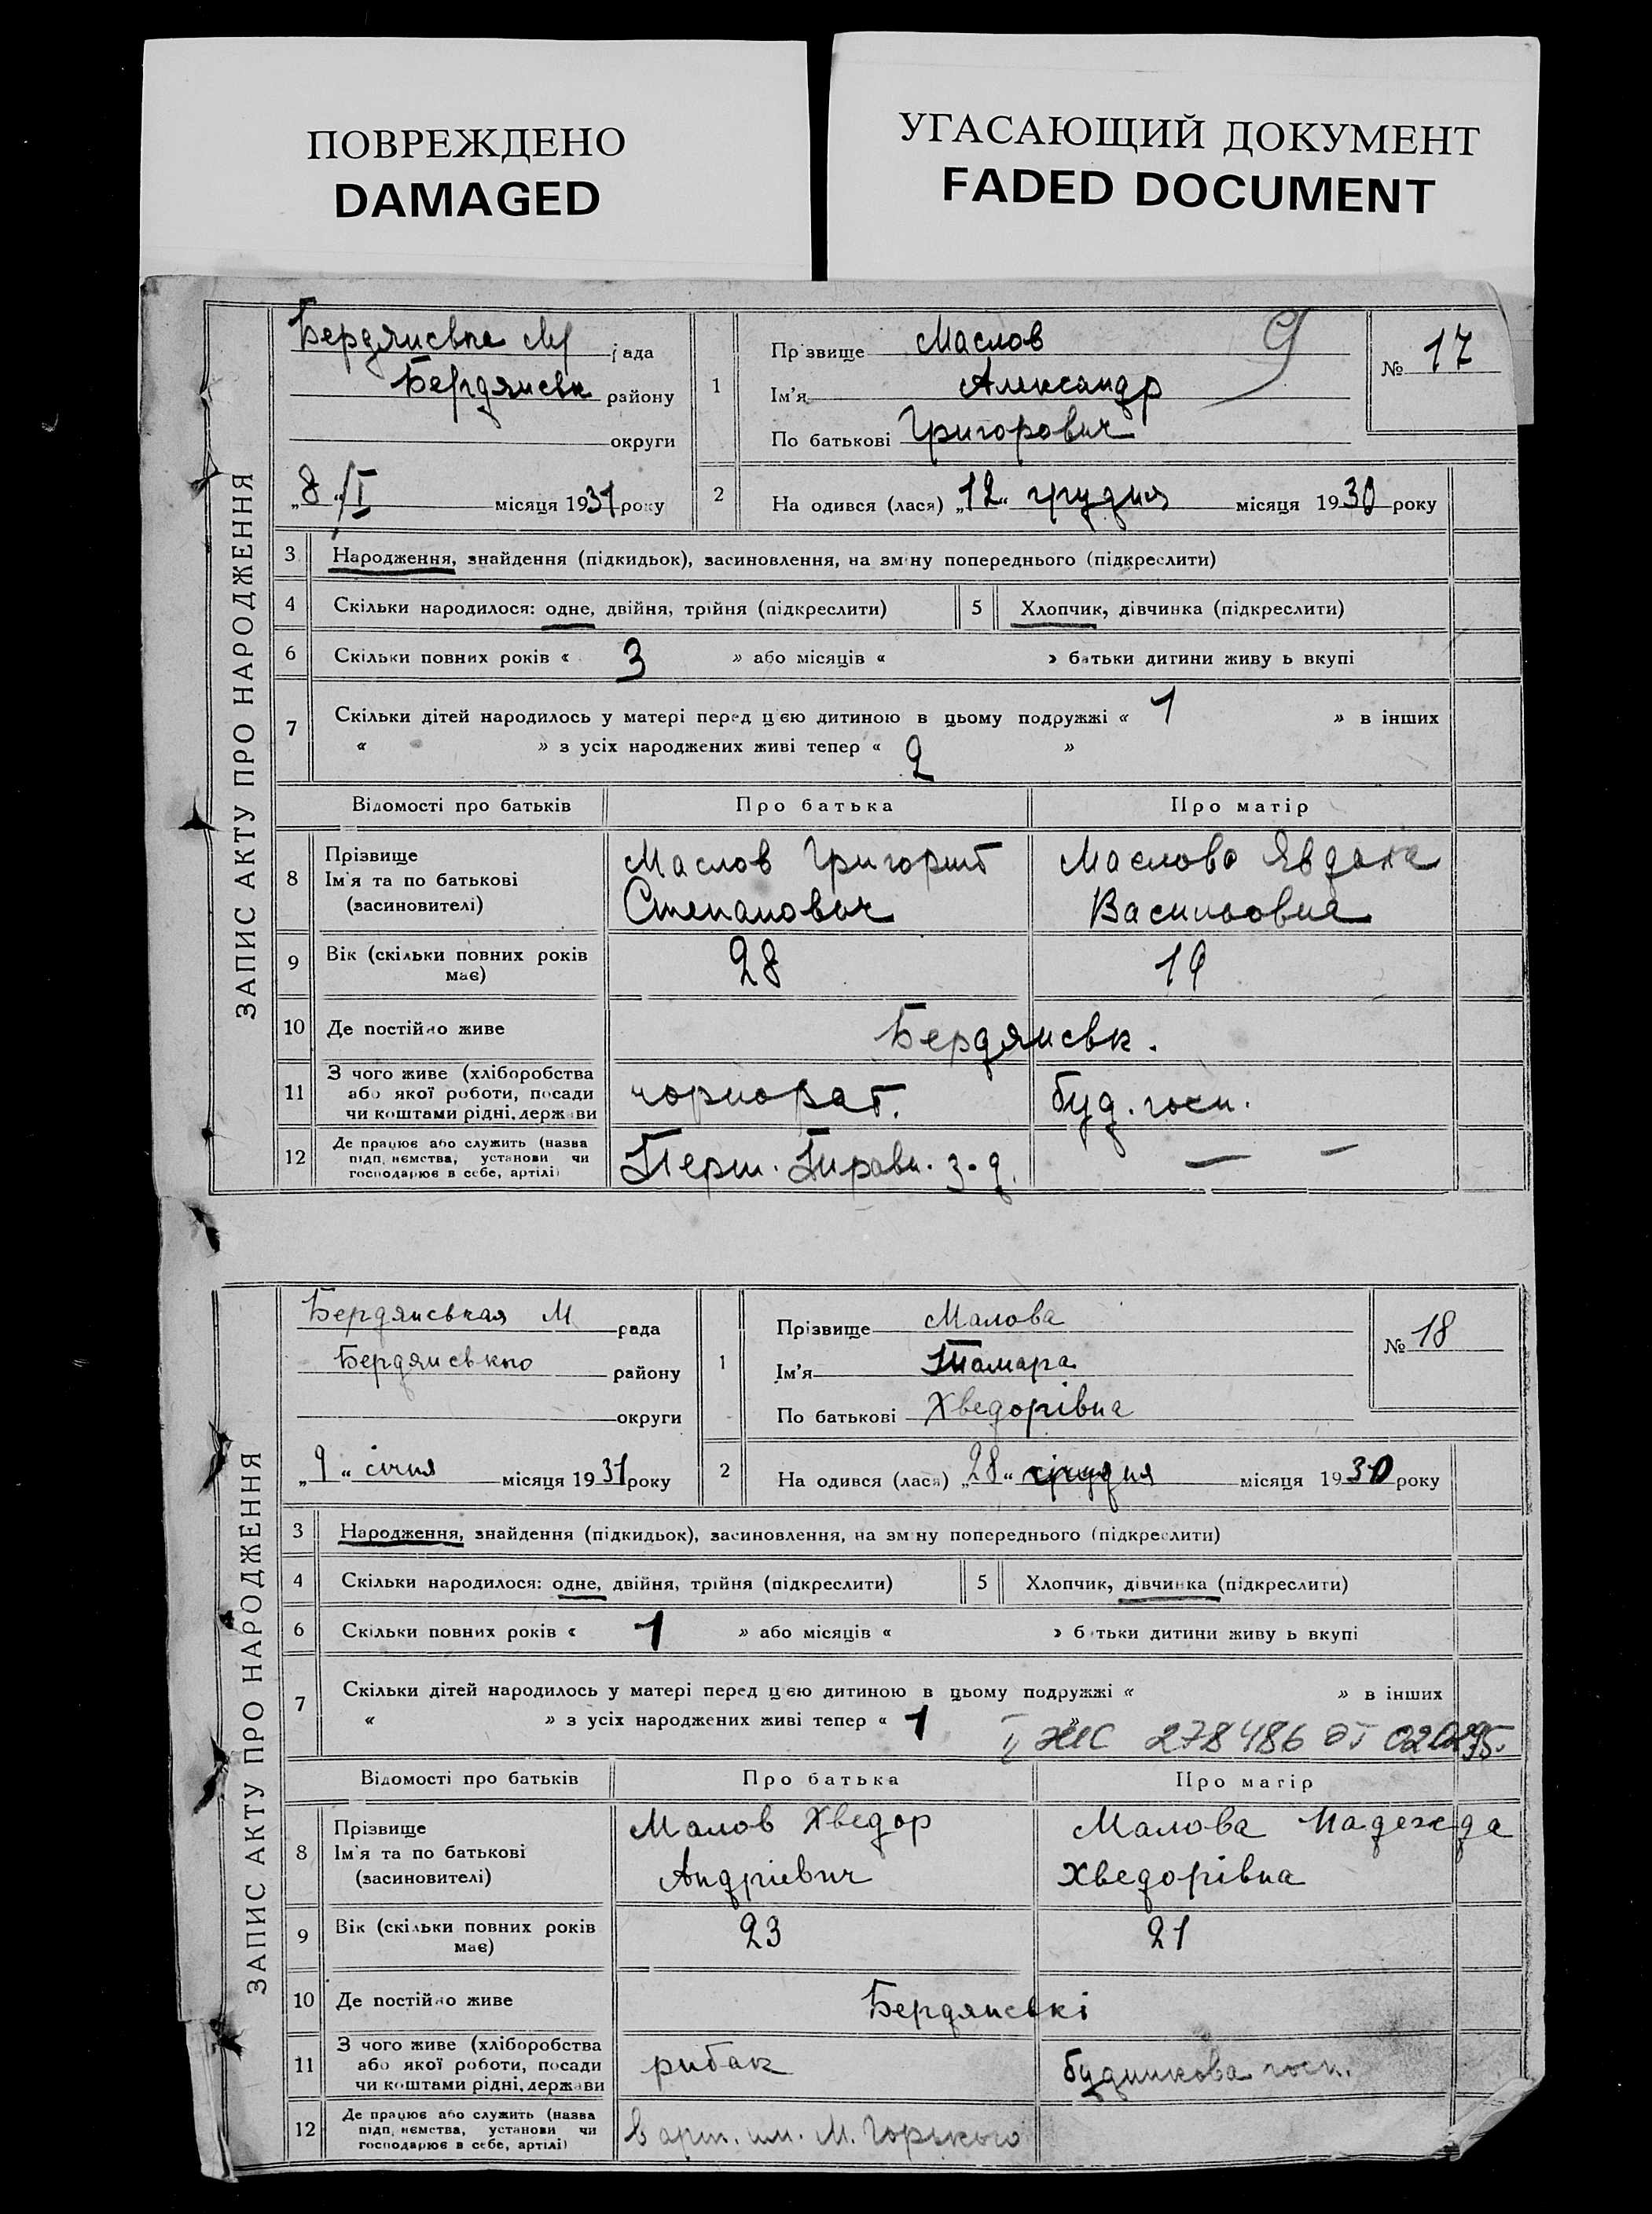 ПОВРЕЖДЕНО
DAMAGED
УГАСАЮЩИЙ ДОКУМЕНТ
FADED DOCUMENT
ЗАПИС АКТУ ПРО НАРОДЖЕННЯ
Бердянська М рада
Бердянськ району
округи
„8“/I місяця 1931 року
1 Прізвище Маслов
Ім'я Александр
По батькові Григорович
№ 17
2 На одився (лася) „12“ грудня місяця 1930 року
3 Народження, знайдення (підкидьок), засиновлення, на зміну попереднього (підкреслити)
4 Скільки народилося: одне, двійня, трійня (підкреслити) 5 Хлопчик, дівчинка (підкреслити)
6 Скільки повних років « 3 » або місяців « » батьки дитини живу ь вкупі
7 Скільки дітей народилось у матері перед цією дитиною в цьому подружжі « 1 » в інших
« » з усіх народжених живі тепер « 2 »
Відомості про батьків Про батька Про матір
8 Прізвище
Ім'я та по батькові
(засиновителі)
Маслов Григорий
Степанович
Маслова Явдоха
Васильовна
9 Вік (скільки повних років
має)
28 19
10 Де постійно живе Бердянськ.
11 З чого живе (хліборобства
або якої роботи, посади
чи коштами рідні, держави
чорнораб. буд. госп.
12 Де працює або служить (назва
підп, нємства, установи чи
господарює в себе, артілі)
Перш. з-д. — —
ЗАПИС АКТУ ПРО НАРОДЖЕННЯ
Бердянськая М рада
Бердянського району
округи
„9“ січня місяця 1931 року
1 Прізвище Малова
Ім'я Тамара
По батькові Хведорівна
№ 18
2 На одився (лася) „28“ грудня місяця 1930 року
3 Народження, знайдення (підкидьок), засиновлення, на зміну попереднього (підкреслити)
4 Скільки народилося: одне, двійня, трійня (підкреслити) 5 Хлопчик, дівчинка (підкреслити)
6 Скільки повних років « 1 » або місяців « » батьки дитини живу ь вкупі
7 Скільки дітей народилось у матері перед цією дитиною в цьому подружжі « » в інших
« » з усіх народжених живі тепер « 1 »
278486 от
Відомості про батьків Про батька Про матір
8 Прізвище
Ім'я та по батькові
(засиновителі)
Малов Хведор
Андрієвич
Малова Надежда
Хведорівна
9 Вік (скільки повних років
має)
23 21
10 Де постійно живе Бердянські
11 З чого живе (хліборобства
або якої роботи, посади
чи коштами рідні, держави
рибак будинкова госп.
12 Де працює або служить (назва
підп, нємства, установи чи
господарює в себе, артілі)
в арт. им. М. Горького